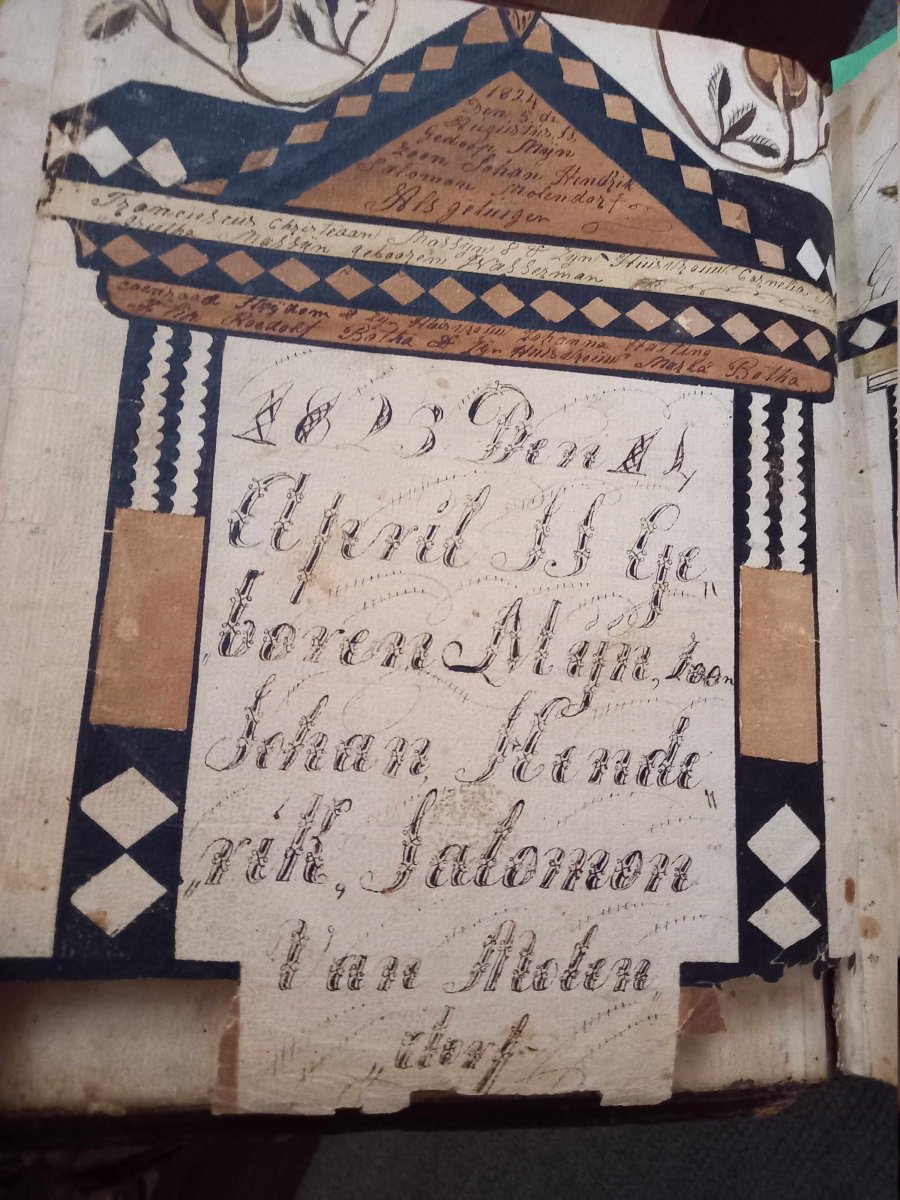 1824
Den 5 de
Augustus IJ
Gedoop Mijn
Zoon Johan Hendrik
Salomon Molendorf
Als getuigen
Franciescus Chrestiaan Massyn & Zyn Huisvrouw Cornelia
Massyn geboozen Wasserman
Coenraad Strydom & Zyn Huisvrouw Johanna
Botha & Zyn Huisvrouw Marta Botha
1823 Den 11
April IJ Ge„
„boren Myn, Zoon
Johan, Hinde„
„rik, Salomon
Van Molen„
„dorf